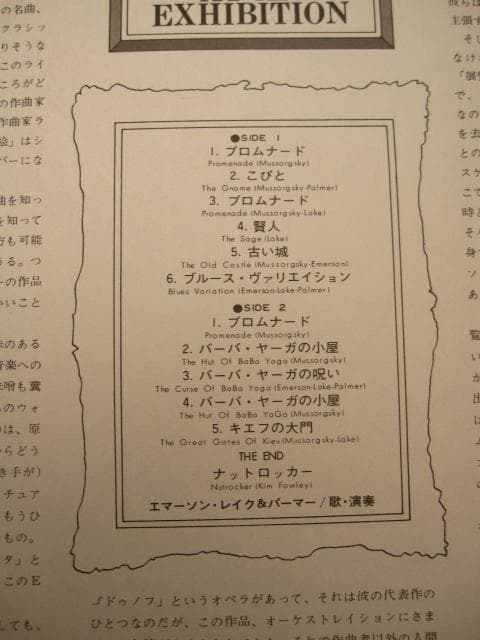 EXHIBITION
の名曲、
クラシッ
りそうな
このライ
ころがど
の作曲家
作曲家ラ
絵」はシ
バーにな
曲を知っ
を知って
方も可能
る。つ
ーの作品
いいこと
味のある
音楽への
味噌も糞
ものウォ
のは、原
からどう
き手が)
チュア
もうひ
もの。
タ」と
このE
しても、
●SIDE 1
1. プロムナード
Promenade (Mussorgsky)
2. こびと
The Gnome (Mussorgsky-Palmer)
3. プロムナード
Promenade (Mussorgsky-Lake)
4. 賢人
The Sage (Lake)
5. 古い城
The Old Castle (Mussorgsky-Emerson)
6. ブルース・ヴァリエイション
Blues Variation (Emerson-Lake-Palmer)
●SIDE 2
1. プロムナード
Promenade (Mussorgsky)
2. バーバ・ヤーガの小屋
The Hut Of BaBa Yaga (Mussorgsky)
3. バーバ・ヤーガの呪い
The Curse Of BaBa Yaga (Emerson-Lake-Palmer)
4. バーバ・ヤーガの小屋
The Hut Of BaBa YaGa (Mussorgsky)
5. キエフの大門
The Great Gates Of Kiev (Mussorgsky-Lake)
THE END
ナットロッカー
Nutrocker (Kim Fowley)
エマーソン・レイク&パーマー/歌・演奏
ゴドゥノフ」というオペラがあって、それは彼の代表作の
ひとつなのだが、この作品、オーケストレイションにさま
彼らは
主張・
そし
なけ
「展覧
で、
なの
を去
との
スケ
こで
時と
そん
身で
ソン
あ
覧
い
が
出
は